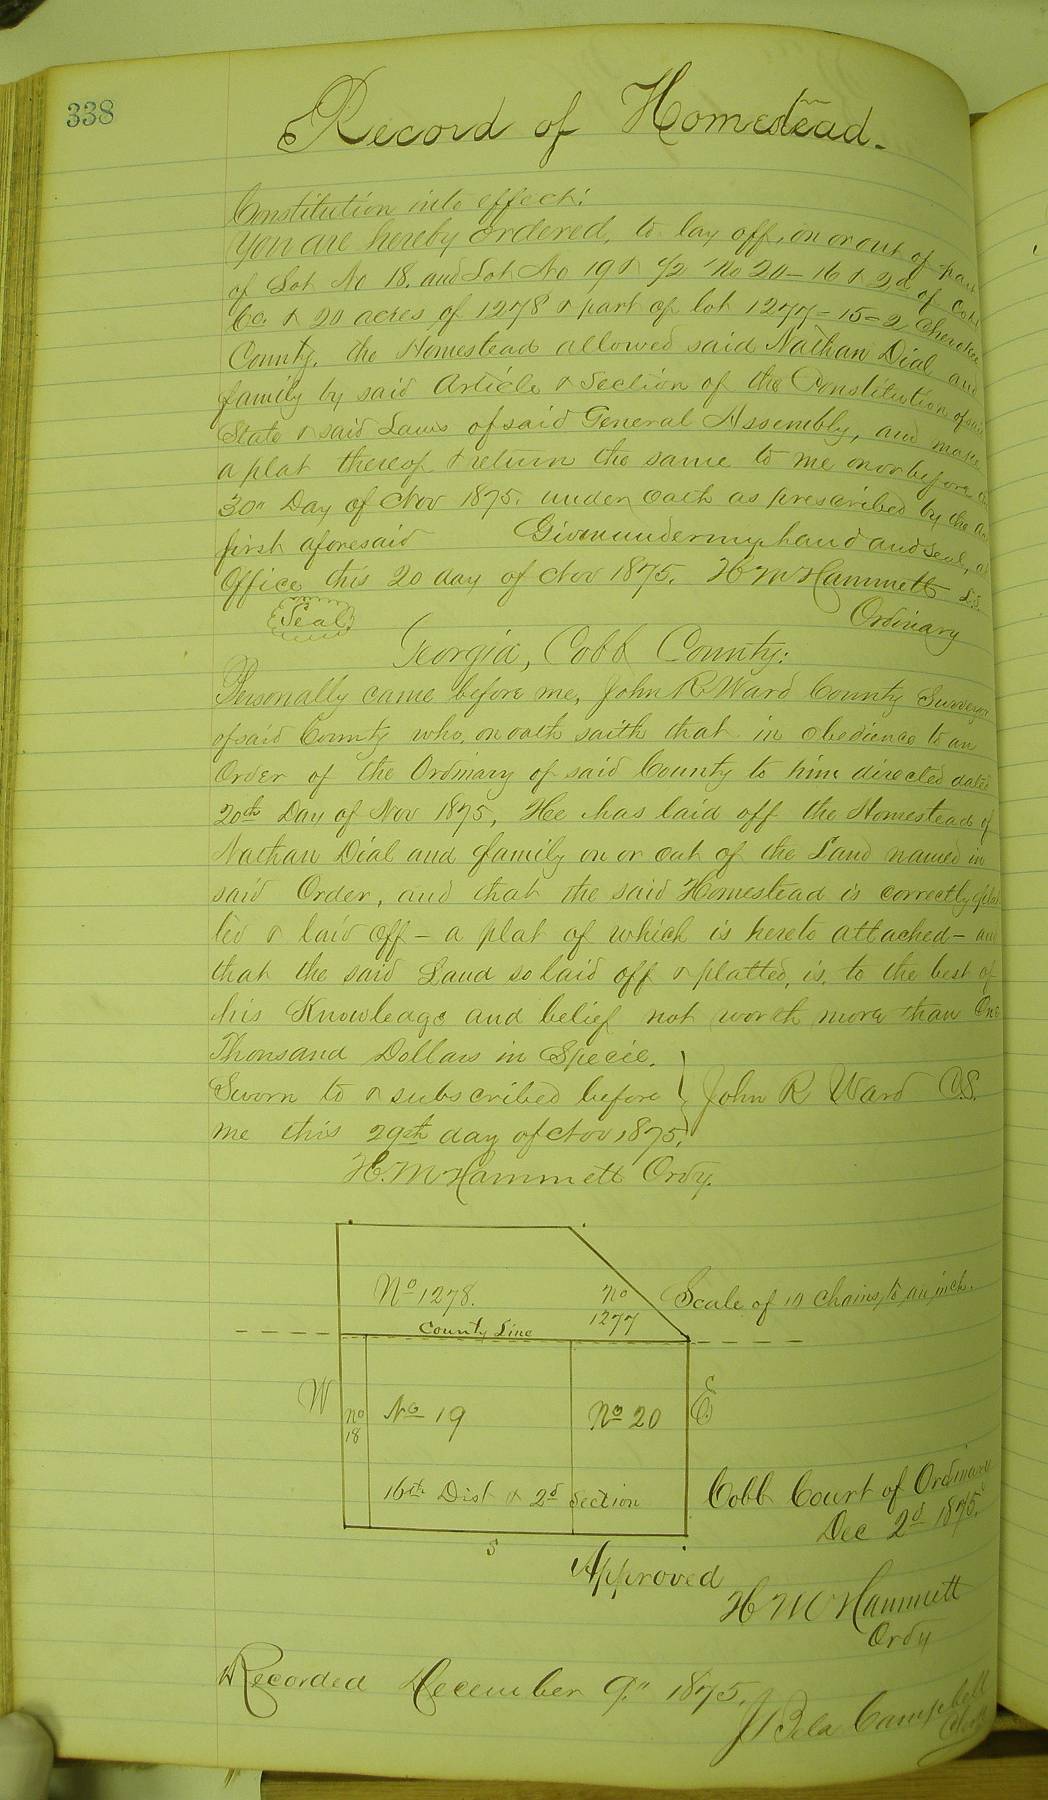 338
Record of Homestead.
Constitution into effect:
You are hereby ordered, to lay off, on or out of part
of Lot No 18. and Lot No 19 & 1/2 No 20 - 16 & 2d of Cobb
Co. & 20 acres of 1278 & part of lot 1277 - 15 = 2 Cherokee
County. the Homestead allowed said Nathan Dial and
family by said Article & Section of the Constitution of said
State & said Laws of said General Assembly, and make
a plat thereof & return the same to me on or before the
30" Day of Nov 1875. under oath as prescribed by the
first aforesaid Given under my hand and seal, at
Office this 20 day of Nov 1875. H M Hammett L.S.
Seal
Ordinary
Georgia, Cobb County:
Personally came before me, John R Ward County Surveyor
of said County who, on oath saith that in obedience to an
Order of the Ordinary of said County to him directed dated
20th Day of Nov 1875, He has laid off the Homestead of
Nathan Dial and family on or out of the Land named in
said Order, and that the said Homestead is correctly plat
ted & laid off - a plat of which is hereto attached - and
that the said Land so laid off & platted, is, to the best of
his Knowledge and belief not worth more than One
Thousand Dollars in Specie.
Sworn to & subscribed before } John R Ward C.S.
me this 29th day of Nov 1875.
H. M Hammett Ordy.
No 1278.
No
1277
Scale of 10 chains, to an inch.
County Line
W
No
18
No 19
No 20
E.
16th Dist & 2d Section
S
Cobb Court of Ordinary
Dec 2d 1875.
Approved
H M Hammett
Ordy
Recorded December 9" 1875.
J Bela Campbell
Clerk